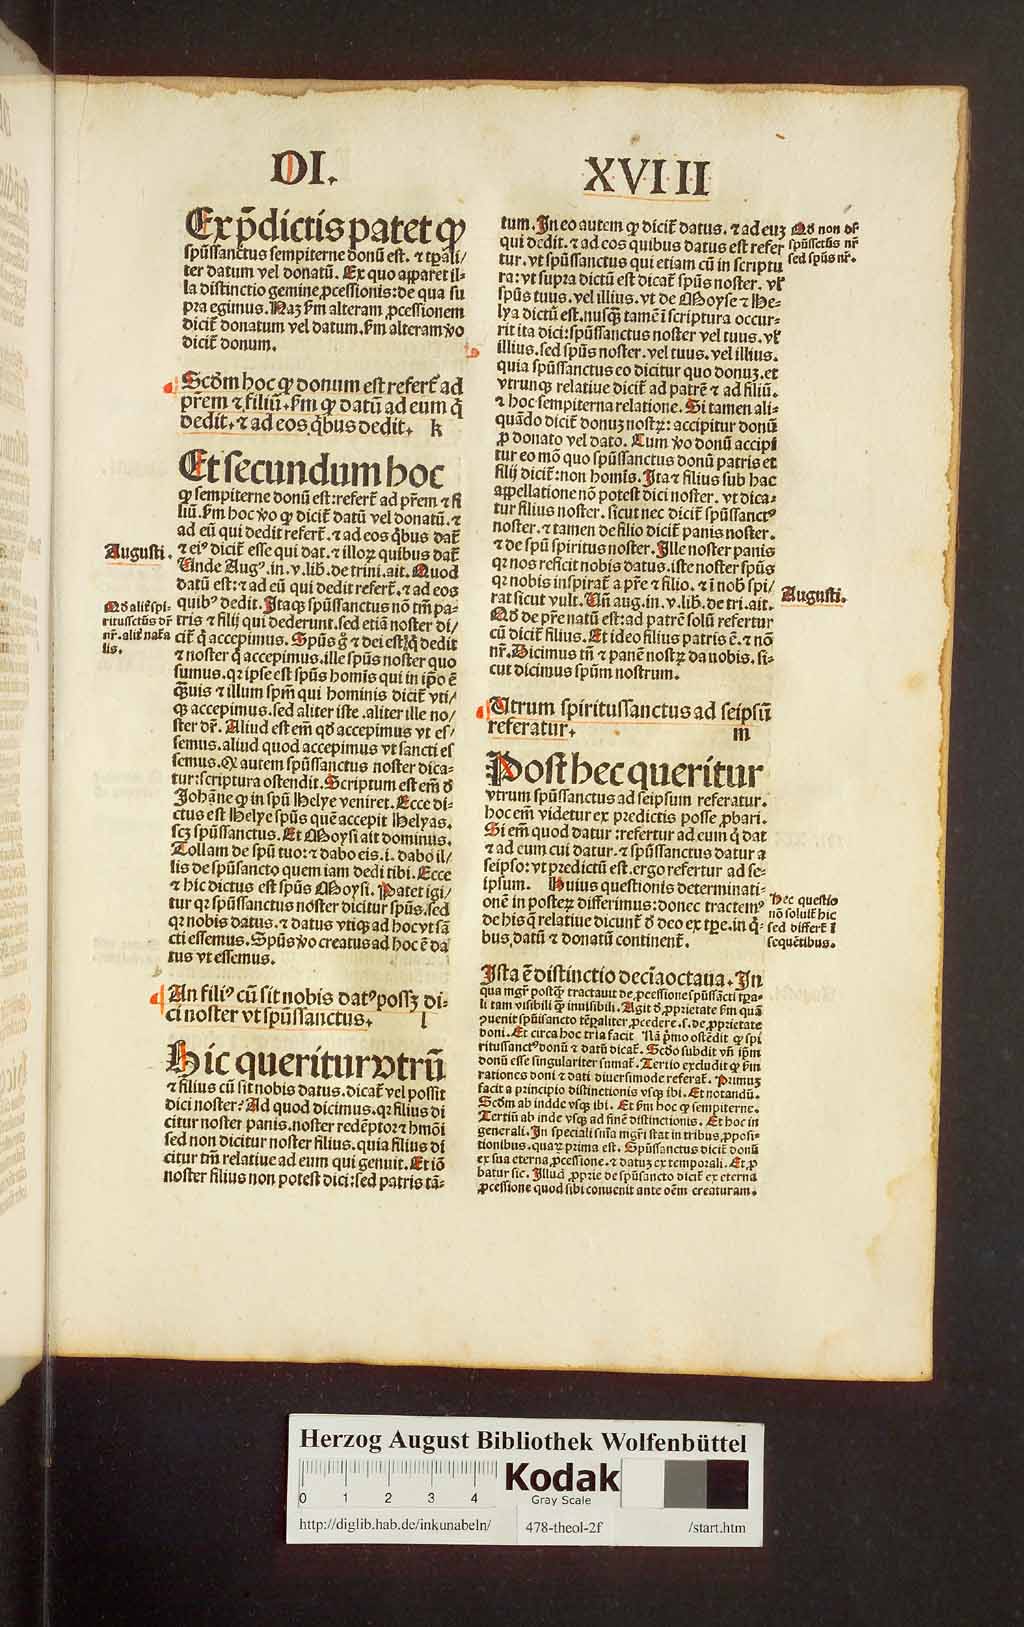 DI.
XVIII
Ex p̄dictis patet ꝙ
spūssanctus sempiterne donū est. ⁊ tp̄ali/
ter datum vel donatū. Ex quo apparet il⸗
la distinctio gemine ꝓcessionis: de qua su
pra egimus. Naꝫ ẜm alteram ꝓcessionem
dicit̄ donatum vel datum. ẜm alteram v̓o
dicit̄ donum.
Scd̓m hoc ꝙ donum est refert̄ ad
pr̄em ⁊ filiū. ẜm ꝙ datū ad eum q̇
dedit. ⁊ ad eos q̇bus dedit. k
Et secundum hoc
ꝙ sempiterne donū est: refert̄ ad pr̄em ⁊ fi
liū. ẜm hoc v̓o ꝙ dicit̄ datū vel donatū. ⁊
ad eū qui dedit refert̄. ⁊ ad eos q̇bus dat̄
Augusti.
⁊ ei⁹ dicit̄ esse qui dat. ⁊ illoꝝ quibus dat̄
Unde Aug⁹. in. v. lib. de trini. ait. Quod
datū est: ⁊ ad eū qui dedit refert̄. ⁊ ad eos
Qd̓ alit̄ spi⸗
ritussctūs dr̄
nr̄. alit̄ nat̄a
lis.
quib⁹ dedit. Itaqꝫ spūssanctus nō tm̄ pa⸗
tris ⁊ filij qui dederunt. sed etiā noster di/
cit̄ q̇ accepimus. Spūs g̊ ⁊ dei est: q̇ dedit
⁊ noster q̇ accepimus. ille spūs noster quo
sumus. qꝛ ipse est spūs homīs qui in ip̄o ē
ꝗ̄uis ⁊ illum spm̄ qui hominis dicit̄ vti/
qꝫ accepimus. sed aliter iste. aliter ille no/
ster dr̄. Aliud est em̄ qd̓ accepimus vt es/
semus. aliud quod accepimus vt sancti es
semus. Qꝛ autem spūssanctus noster dica⸗
tur: scriptura ostendit. Scriptum est em̄ d̓
Johāne ꝙ in spū Helye veniret. Ecce di⸗
ctus est Helye spūs quē accepit Helyas.
scꝫ spūssanctus. Et Moysi ait dominus.
Tollam de spū tuo: ⁊ dabo eis. i. dabo il/
lis de spūsancto quem iam dedi tibi. Ecce
⁊ hic dictus est spūs Moysi. Patet igi/
tur qꝛ spūssanctus noster dicitur spūs. sed
qꝛ nobis datus. ⁊ datus vtiqꝫ ad hoc vt sā
cti essemus. Spūs v̓o creatus ad hoc ē da
tus vt essemus.
An fili⁹ cū sit nobis dat⁹ possꝫ di⸗
ci noster vt spūssanctus. l
Hic queritur vtrū
⁊ filius cū sit nobis datus. dicat̄ vel possit
dici noster? Ad quod dicimus. qꝛ filius di
citur noster panis. noster redēptor ⁊ hmōi
sed non dicitur noster filius. quia filius di
citur tm̄ relatiue ad eum qui genuit. Et iō
noster filius non potest dici: sed patris tā⸗
tum. In eo autem ꝙ dicit̄ datus. ⁊ ad euꝫ
qui dedit. ⁊ ad eos quibus datus est refer
tur. vt spūssanctus qui etiam cū in scriptu
Qd̓ non dr̄
spūssctūs nr̄
sed spūs nr̄.
ra: vt supra dictū est dicat̄ spūs noster. vl̓
spūs tuus. vel illius. vt de Moyse ⁊ He⸗
lya dictū est. nusqꝫ tamē ī scriptura occur⸗
rit ita dici: spūssanctus noster vel tuus. vl̓
illius. sed spūs noster. vel tuus. vel illius.
quia spūssanctus eo dicitur quo donuꝫ. et
vtrunqꝫ relatiue dicit̄ ad patrē ⁊ ad filiū.
⁊ hoc sempiterna relatione. Si tamen ali⸗
quādo dicit̄ donuꝫ nostꝝ: accipitur donū
ꝓ donato vel dato. Cum v̓o donū accipi
tur eo mō quo spūssanctus donū patris et
filij dicit̄: non homīs. Ita ⁊ filius sub hac
appellatione nō potest dici noster. vt dica⸗
tur filius noster. sicut nec dicit̄ spūssanct⁹
noster. ⁊ tamen de filio dicit̄ panis noster.
⁊ de spū spiritus noster. Ille noster panis
qꝛ nos reficit nobis datus. iste noster spūs
qꝛ nobis inspirat̄ a pr̄e ⁊ filio. ⁊ ī nob̓ spi/
rat sicut vult. Uñ aug. in. v. lib. de tri. ait.
Augusti.
Qd̓ de pr̄e natū est: ad patrē solū refertur
cū dicit̄ filius. Et ideo filius patris ē. ⁊ nō
nr̄. Dicimus tñ ⁊ panē nostꝝ da nobis. si⸗
cut dicimus spūm nostrum.
Utrum spiritussanctus ad seipsū
referatur. m
Post hec queritur
vtrum spūssanctus ad seipsum referatur.
hoc em̄ videtur ex predictis posse ꝓbari.
Si em̄ quod datur: refertur ad eum q̇ dat
⁊ ad eum cui datur. ⁊ spūssanctus datur a
seipso: vt predictū est. ergo refertur ad se⸗
ipsum. Huius questionis determinati⸗
onē in posteꝝ differimus: donec tractem⁹
Hec questio
nō soluit̄ hic
sed differt̄ ī
sequētibus.
de his q̄ relatiue dicunt̄ d̓ deo ex tpe. in q̇⸗
bus datū ⁊ donatū continent̄.
Ista ē distinctio decīa octaua. In
qua mgr̄ postqꝫ tractauit de ꝓcessione spūssācti tp̄a⸗
li tam visibili ꝗ̄ inuisibili. Agit d̓ ꝓprietate ẜm quā
ꝯuenit spūisancto tēp̄aliter ꝓcedere. s. de ꝓprietate
doni. Et circa hoc tria facit Nā p̄mo ostēdit ꝙ spi
ritussanct⁹ donū ⁊ datū dicat̄. Scd̓o subdit vñ ip̄m
donū esse singulariter sumat̄. Tertio excludit ꝙ ẜm
rationes doni ⁊ dati diuersimode referat̄. Primuꝫ
facit a principio distinctionis vsqꝫ ibi. Et notandū.
Scd̓m ab indde vsqꝫ ibi. Et ẜm hoc ꝙ sempiterne.
Tertiū ab inde vsqꝫ ad finē distinctionis. Et hoc in
generali. In speciali sn̄ia mgr̄i stat in tribus ꝓposi⸗
tionibus. quaꝝ prima est. Spūssanctus dicit̄ donū
ex sua eterna ꝓcessione. ⁊ datuꝫ ex temporali. Et ꝓ
batur sic. Illud ꝓprie de spūsancto dicit̄ ex eterna
ꝓcessione quod sibi conuenit ante oēm creaturam.
Herzog August Bibliothek Wolfenbüttel
0 1 2 3 4
Kodak
Gray Scale
http://diglib.hab.de/inkunabeln/ 478-theol-2f /start.htm